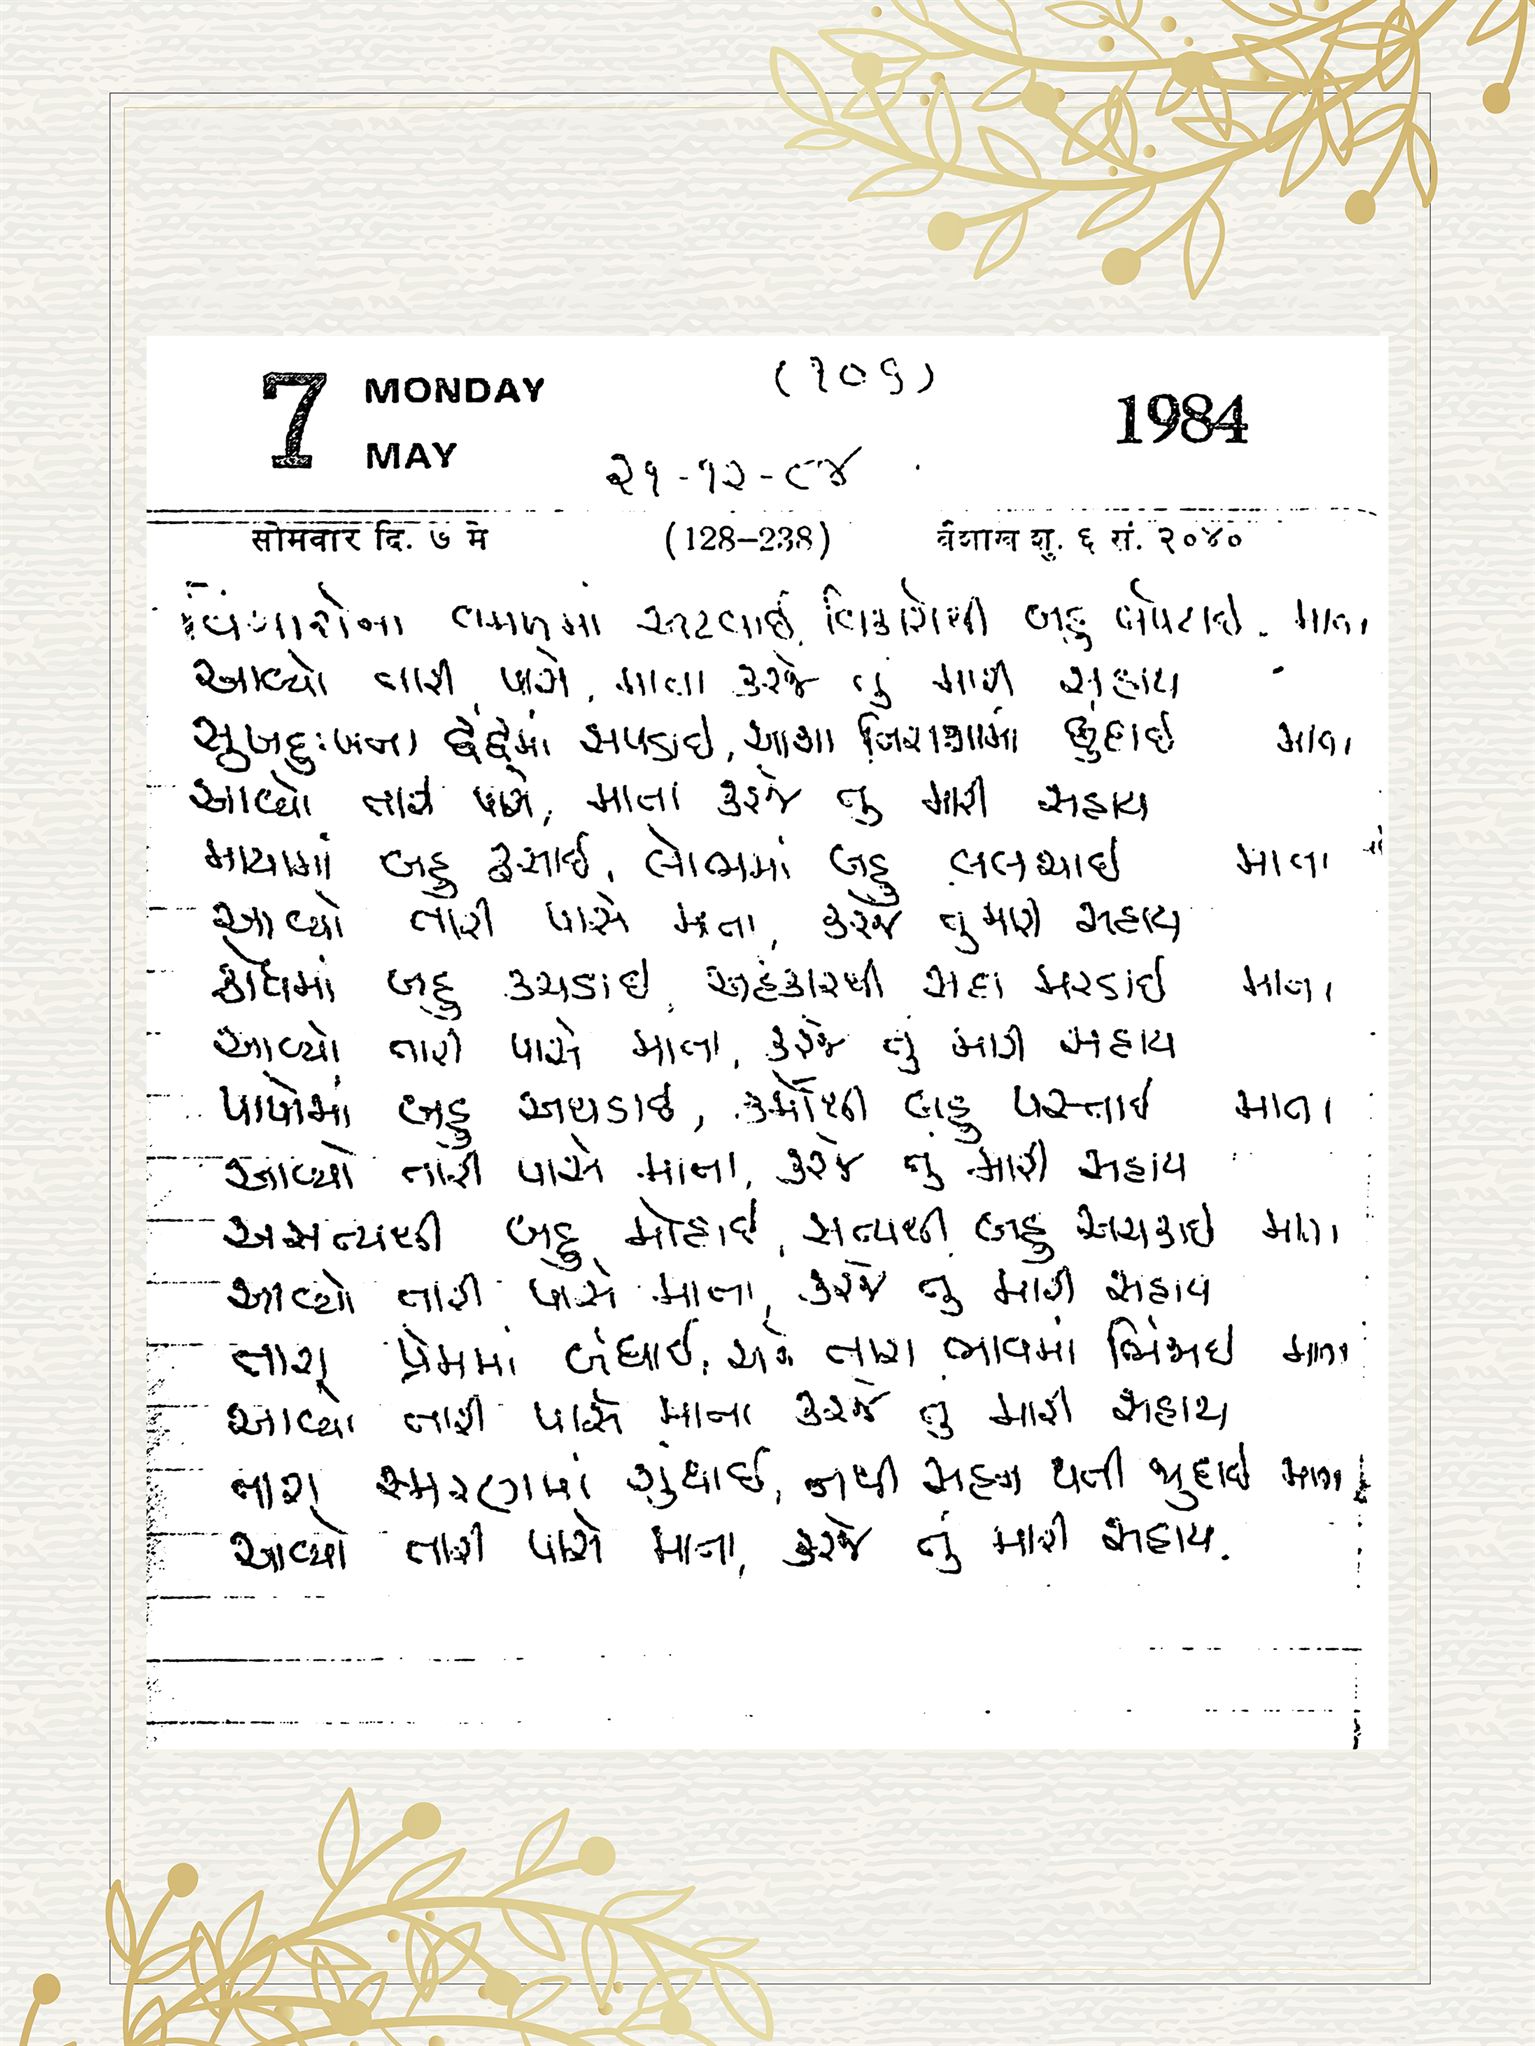 7 MONDAY MAY
(૧૦૬)
1984
૨૧-૧૨-૮૪
सोमवार दि. ७ मे (128–238) वैशाख शु. ६ सं. २०४०
વિચારોના વમળમાં અટવાઈ, વિકારોથી બહુ લપેટાઈ. માતા
આવ્યો તારી પાસે, માતા કરજે તું મારી સહાય
સુખદુઃખના દ્વંદ્વમાં સપડાઇ, આશા નિરાશામાં માતા
આવ્યો તારી પાસે, માતા કરજે તુ મારી સહાય
માયામાં બહુ ફસાઈ, લોભમાં બહુ લલચાઇ માતા
આવ્યો તારી પાસે માતા, કરજે તુ મારી સહાય
ક્રોધમાં બહુ કચડાઇ, અહંકારથી સદા મરડાઈ માતા
આવ્યો તારી પાસે માતા, કરજે તું મારી સહાય
પાપોમાં બહુ અથડાઈ, કર્મોથી બહુ પસ્તાઇ માતા
આવ્યો તારી પાસે માતા, કરજે તું મારી સહાય
અસત્યથી બહુ મોહાઈ, સત્યથી બહુ અચકાઇ માતા
આવ્યો તારી પાસે માતા, કરજે તુ મારી સહાય
તારા પ્રેમમાં બંધાઈ, અને તારા ભાવમાં ભિંજાઇ માતા
આવ્યો તારી પાસે માતા કરજે તુ મારી સહાય
તારા સ્મરણમાં ગુંથાઈ, નથી સહન થતી જુદાઇ માતા
આવ્યો તારી પાસે માતા, કરજે તું મારી સહાય.